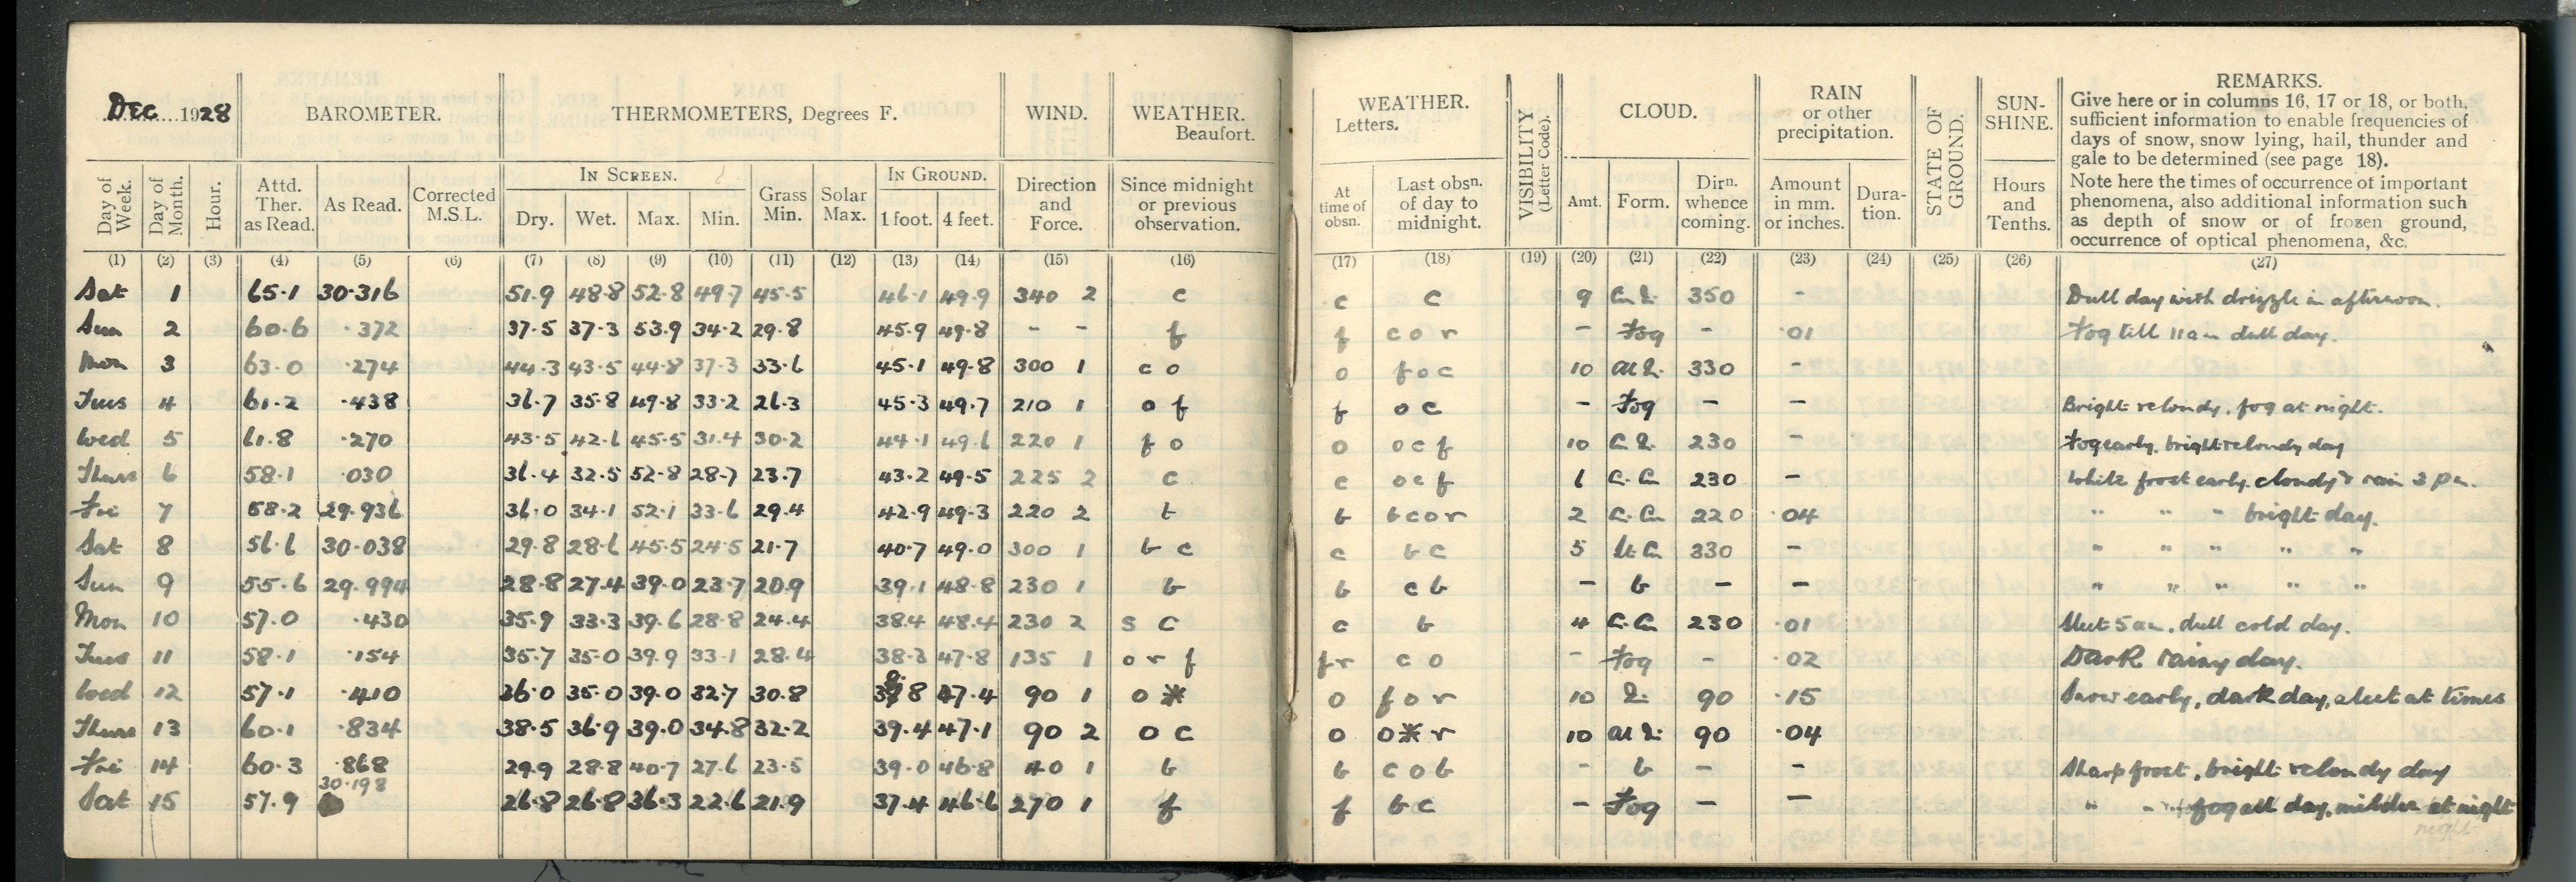 Dec 1928
BAROMETER.
THERMOMETERS, Degrees F.
WIND.
WEATHER.
Beaufort.
Day of Week.
Day of Month.
Hour.
Attd. Ther. as Read.
As Read.
Corrected M.S.L.
IN SCREEN.
Dry.
Wet.
Max.
Min.
Grass Min.
Solar Max.
IN GROUND.
1 foot.
4 feet.
Direction and Force.
Since midnight or previous observation.
(1) (2) (3) (4) (5) (6) (7) (8) (9) (10) (11) (12) (13) (14) (15) (16)
Sat 1 65.1 30.316 51.9 48.8 52.8 49.7 45.5 46.1 49.9 340 2 c
Sun 2 60.6 .372 37.5 37.3 53.9 34.2 29.8 45.9 49.8 - - f
Mon 3 63.0 .274 44.3 43.5 44.8 37.3 33.6 45.1 49.8 300 1 c o
Tues 4 61.2 .438 36.7 35.8 49.8 33.2 26.3 45.3 49.7 210 1 o f
Wed 5 61.8 .270 43.5 42.6 45.5 31.4 30.2 44.1 49.6 220 1 f o
Thurs 6 58.1 .030 36.4 32.5 52.8 28.7 23.7 43.2 49.5 225 2 c
Fri 7 58.2 29.936 36.0 34.1 52.1 33.6 29.4 42.9 49.3 220 2 b
Sat 8 56.6 30.038 29.8 28.6 45.5 24.5 21.7 40.7 49.0 300 1 b c
Sun 9 55.6 29.994 28.8 27.4 39.0 23.7 20.9 39.1 48.8 230 1 b
Mon 10 57.0 .430 35.9 33.3 39.6 28.8 24.4 38.4 48.4 230 2 s c
Tues 11 58.1 .154 35.7 35.0 39.9 33.1 28.4 38.3 47.8 135 1 o r f
Wed 12 57.1 .410 36.0 35.0 39.0 32.7 30.8 47.4 90 1 o *
Thurs 13 60.1 .834 38.5 36.9 39.0 34.8 32.2 39.4 47.1 90 2 o c
Fri 14 60.3 .868 29.9 28.8 40.7 27.6 23.5 39.0 46.8 40 1 b
Sat 15 57.9 30.198 26.8 26.8 36.3 22.6 21.9 37.4 46.6 270 1 f
WEATHER.
Letters.
VISIBILITY (Letter Code).
CLOUD.
RAIN or other precipitation.
STATE OF GROUND.
SUN-SHINE.
REMARKS.
Give here or in columns 16, 17 or 18, or both,
sufficient information to enable frequencies of
days of snow, snow lying, hail, thunder and
gale to be determined (see page 18).
Note here the times of occurrence of important
phenomena, also additional information such
as depth of snow or of frozen ground,
occurrence of optical phenomena, &c.
At time of obsn.
Last obsn. of day to midnight.
Amt.
Form.
Dirn. whence coming.
Amount in mm. or inches.
Dura-tion.
Hours and Tenths.
(17) (18) (19) (20) (21) (22) (23) (24) (25) (26) (27)
c c 9 350 - Dull day with drizzle in afternoon.
f c o r - Fog - .01 Fog till 11am dull day.
o f o c 10 330 -
f o c - Fog - - Bright & cloudy, fog at night.
o o c f 10 230 - Fog early, bright & cloudy day
c o c f 6 C. Cu 230 - White frost early. cloudy & rain 3 pm.
b b c o r 2 C. Cu 220 .04 " " " bright day.
c b c 5 St. Cu 330 - " " " " "
b c b - b - - " " " " "
c b 4 C. Cu 230 .01 Sleet 5 am, dull cold day.
f r c o - Fog - .02 Dark rainy day.
o f o r 10 90 .15 Snow early, dark day, sleet at times
o o * r 10 90 .04
b c o b - b - - Sharp frost, bright & cloudy day
f b c - Fog - - " " fog all day, milder at night
night